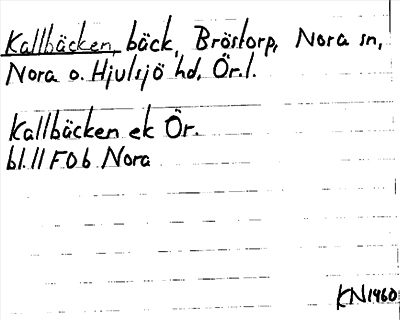 Kallbäcken, bäck, Bröstorp, Nora sn,
Nora o. Hjulsjö hd, Ör.l.
Kallbäcken ek Ör.
bl. 11 F0b Nora
KN1960